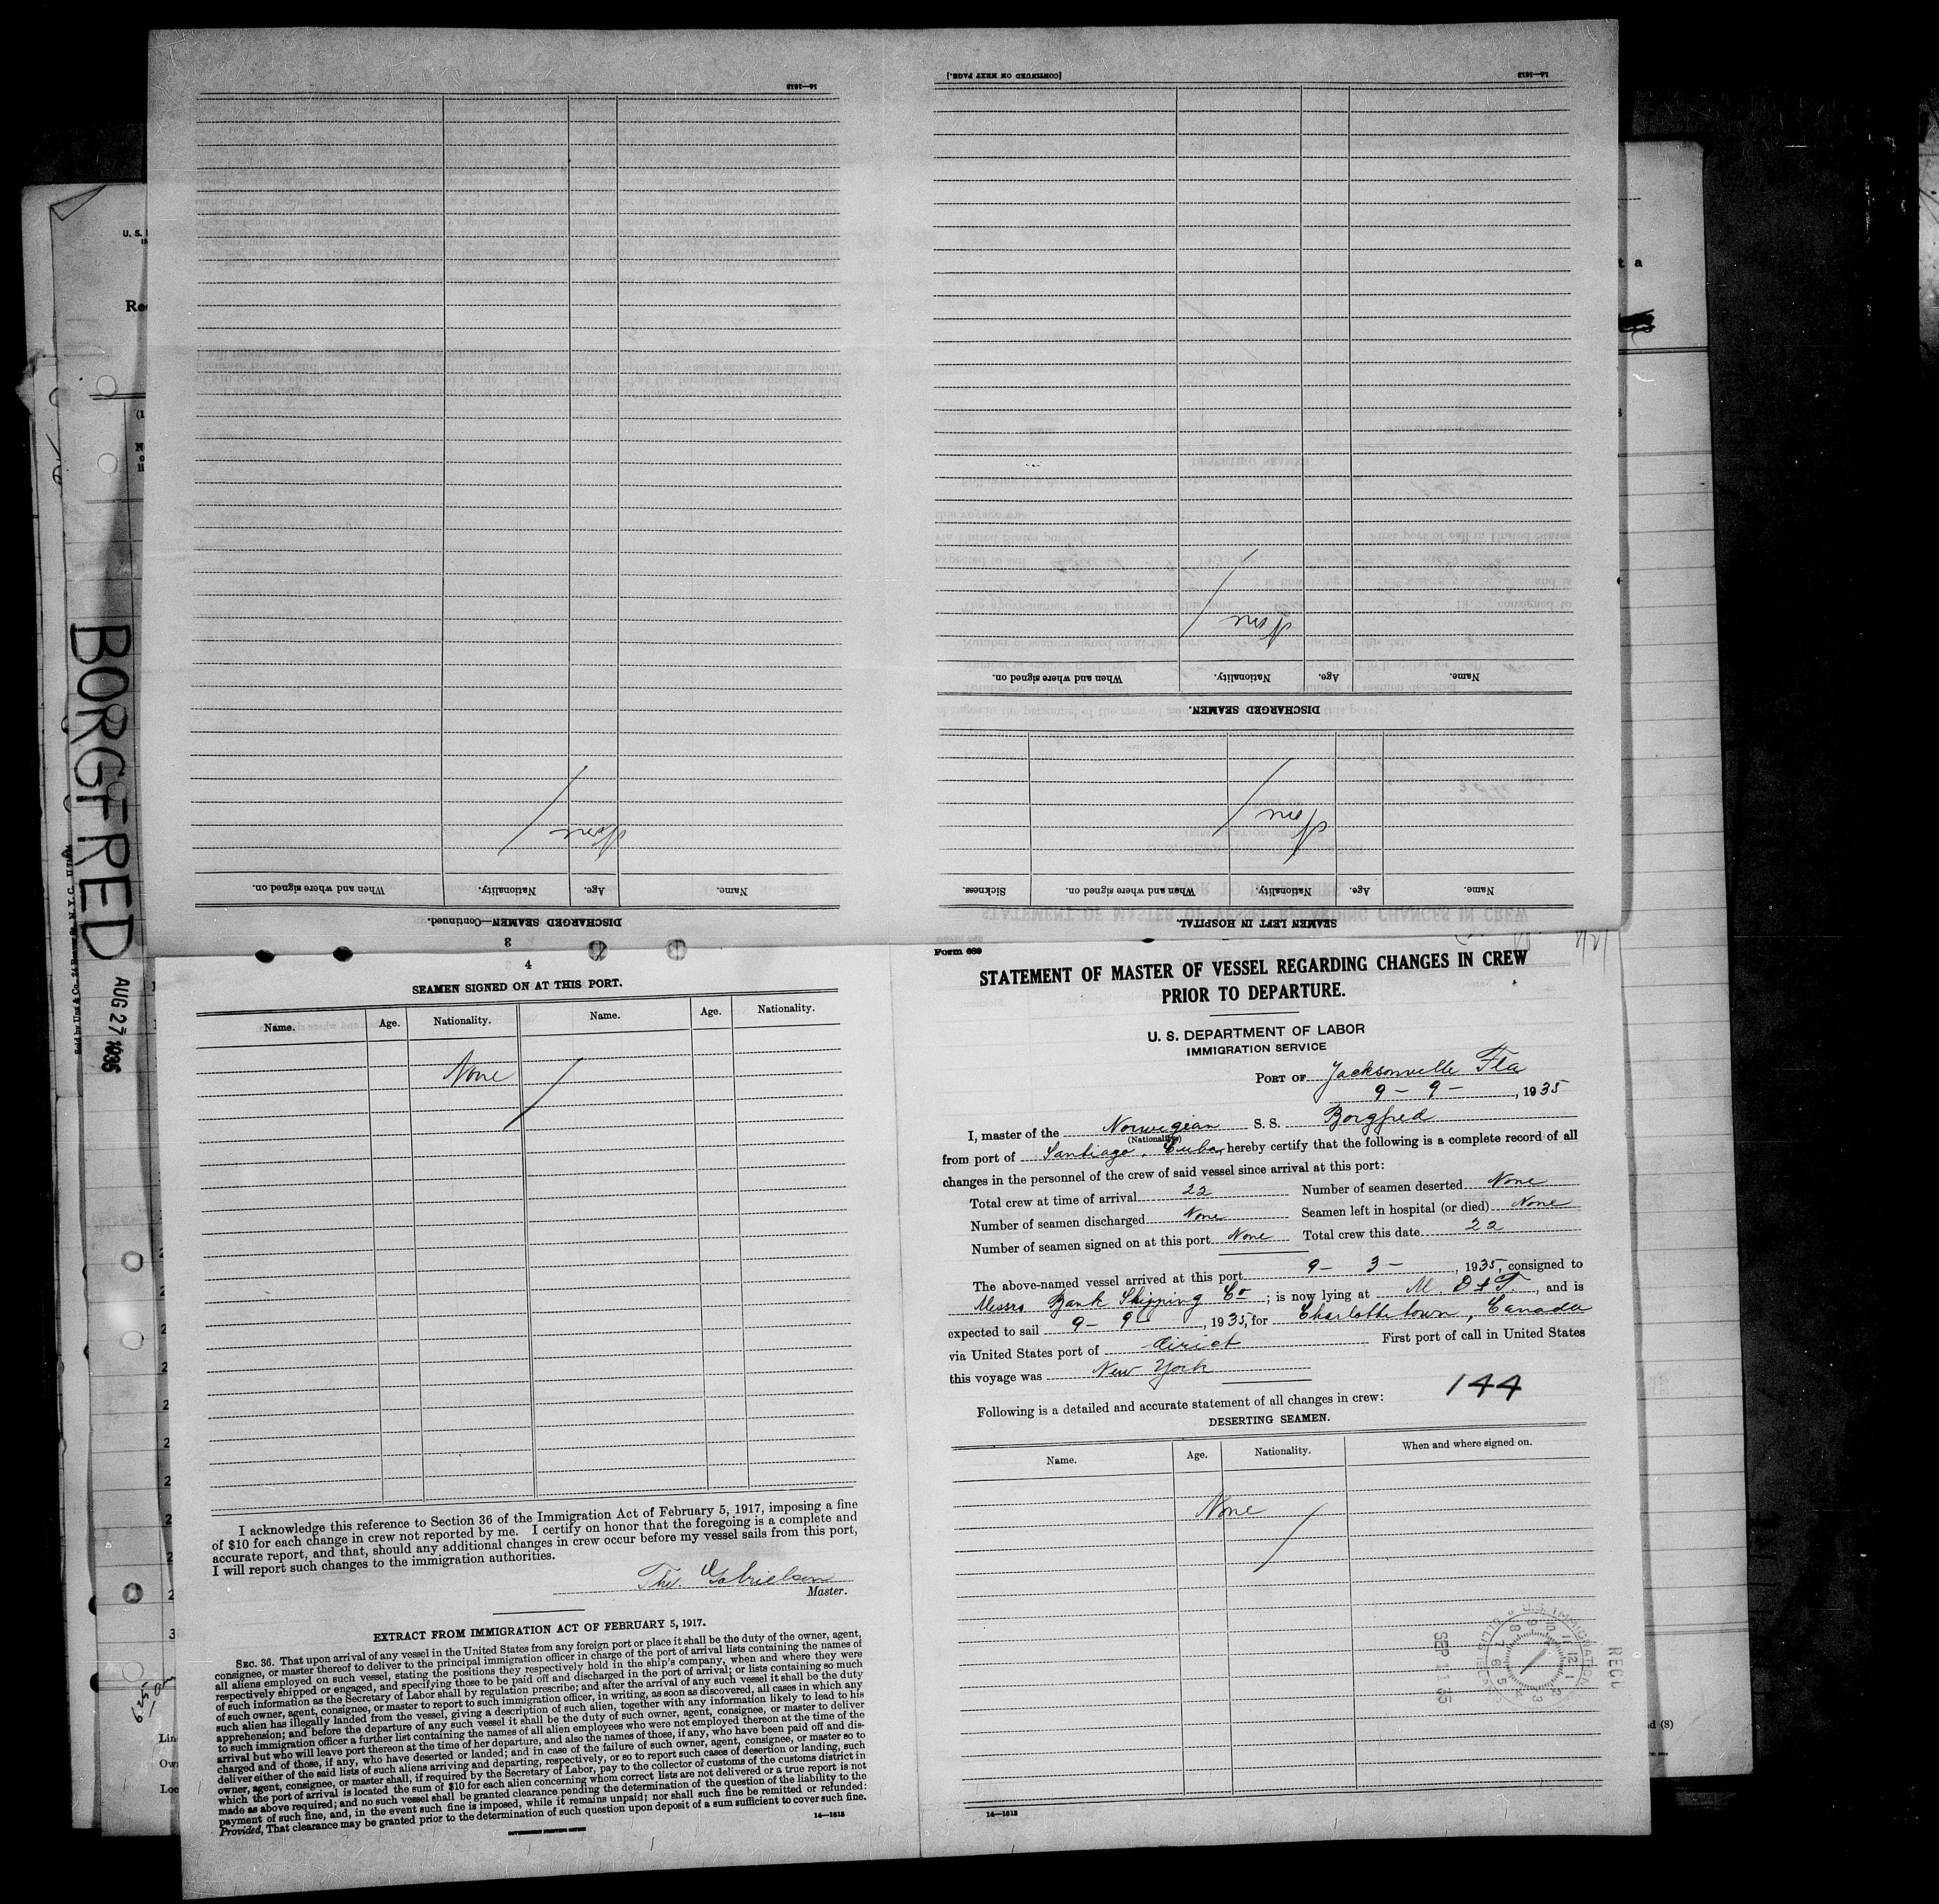 14—1613
[CONTINUED ON NEXT PAGE.]
14—1613
DISCHARGED SEAMEN.
Name.
Age.
Nationality.
When and where signed on.
None
SEAMEN LEFT IN HOSPITAL.
Name.
Age.
Nationality.
When and where signed on.
Sickness.
None
3
DISCHARGED SEAMEN—Continued.
Name.
Age.
Nationality.
When and where signed on.
None
4
SEAMEN SIGNED ON AT THIS PORT.
Name. Age. Nationality. Name. Age. Nationality.
None
I acknowledge this reference to Section 36 of the Immigration Act of February 5, 1917, imposing a fine
of $10 for each change in crew not reported by me. I certify on honor that the foregoing is a complete and
accurate report, and that, should any additional changes in crew occur before my vessel sails from this port,
I will report such changes to the immigration authorities.
Thv. Gabrielsen
Master.
EXTRACT FROM IMMIGRATION ACT OF FEBRUARY 5, 1917.
SEC. 36. That upon arrival of any vessel in the United States from any foreign port or place it shall be the duty of the owner, agent,
consignee, or master thereof to deliver to the principal immigration officer in charge of the port of arrival lists containing the names of
all aliens employed on such vessel, stating the positions they respectively hold in the ship's company, when and where they were
respectively shipped or engaged, and specifying those to be paid off and discharged in the port of arrival; or lists containing so much
of such information as the Secretary of Labor shall by regulation prescribe; and after the arrival of any such vessel it shall be the duty
of such owner, agent, consignee, or master to report to such immigration officer, in writing, as soon as discovered, all cases in which any
such alien has illegally landed from the vessel, giving a description of such alien, together with any information likely to lead to his
apprehension; and before the departure of any such vessel it shall be the duty of such owner, agent, consignee, or master to deliver
to such immigration officer a further list containing the names of all alien employees who were not employed thereon at the time of the
arrival but who will leave port thereon at the time of her departure, and also the names of those, if any, who have been paid off and dis-
charged and of those, if any, who have deserted or landed; and in case of the failure of such owner, agent, consignee, or master so to
deliver either of the said lists of such aliens arriving and departing, respectively, or so to report such cases of desertion or landing, such
owner, agent, consignee, or master shall, if required by the Secretary of Labor, pay to the collector of customs of the customs district in
which the port of arrival is located the sum of $10 for each alien concerning whom correct lists are not delivered or a true report is not
made as above required; and no such vessel shall be granted clearance pending the determination of the question of the liability to the
payment of such fine, and, in the event such fine is imposed, while it remains unpaid; nor shall such fine be remitted or refunded:
Provided, That clearance may be granted prior to the determination of such question upon deposit of a sum sufficient to cover such fine.
14—1613
GOVERNMENT PRINTING OFFICE
Form 689
STATEMENT OF MASTER OF VESSEL REGARDING CHANGES IN CREW
PRIOR TO DEPARTURE.
U. S. DEPARTMENT OF LABOR
IMMIGRATION SERVICE
PORT OF Jacksonville Fla
9 - 9 - , 1935
I, master of the Norwegian S. S. Borgfred
(Nationality)
from port of Santiago, Cuba, hereby certify that the following is a complete record of all
changes in the personnel of the crew of said vessel since arrival at this port:
Total crew at time of arrival 22 Number of seamen deserted None
Number of seamen discharged None Seamen left in hospital (or died) None
Number of seamen signed on at this port None Total crew this date 22
The above-named vessel arrived at this port 9 - 3 - , 1935, consigned to
Messrs Bank Shipping Co ; is now lying at M. D & T. , and is
expected to sail 9 - 9 , 1935, for Charlottetown, Canada
via United States port of direct First port of call in United States
this voyage was New York
144
Following is a detailed and accurate statement of all changes in crew:
DESERTING SEAMEN.
Name. Age. Nationality. When and where signed on.
None
14—1613
REC'D
U. S. IMMIGRATION
SEP 11 35
BORGFRED
AUG 27 1935
Sold by Unz & Co., 24 Beaver St., N. Y. C.
U. S.